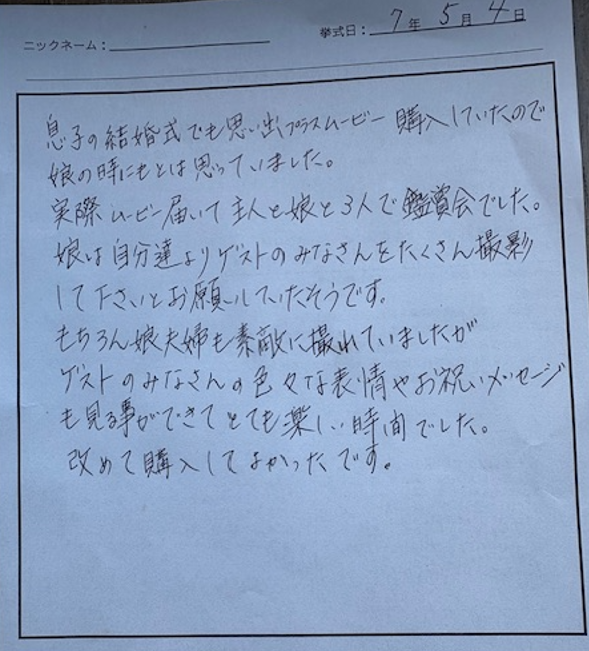 ニックネーム：
挙式日： 7年 5月 4日
息子の結婚式でも思い出プラスムービー 購入していたので
娘の時にもとは思っていました。
実際 ムービー届いて 主人と娘と3人で 鑑賞会でした。
娘は自分達よりゲストのみなさんをたくさん撮影
して下さいとお願いしていたそうです。
もちろん娘夫婦も素敵に撮れていましたが
ゲストのみなさんの色々な表情やお祝いメッセージ
も見る事ができてとても楽しい時間でした。
改めて購入してよかったです。